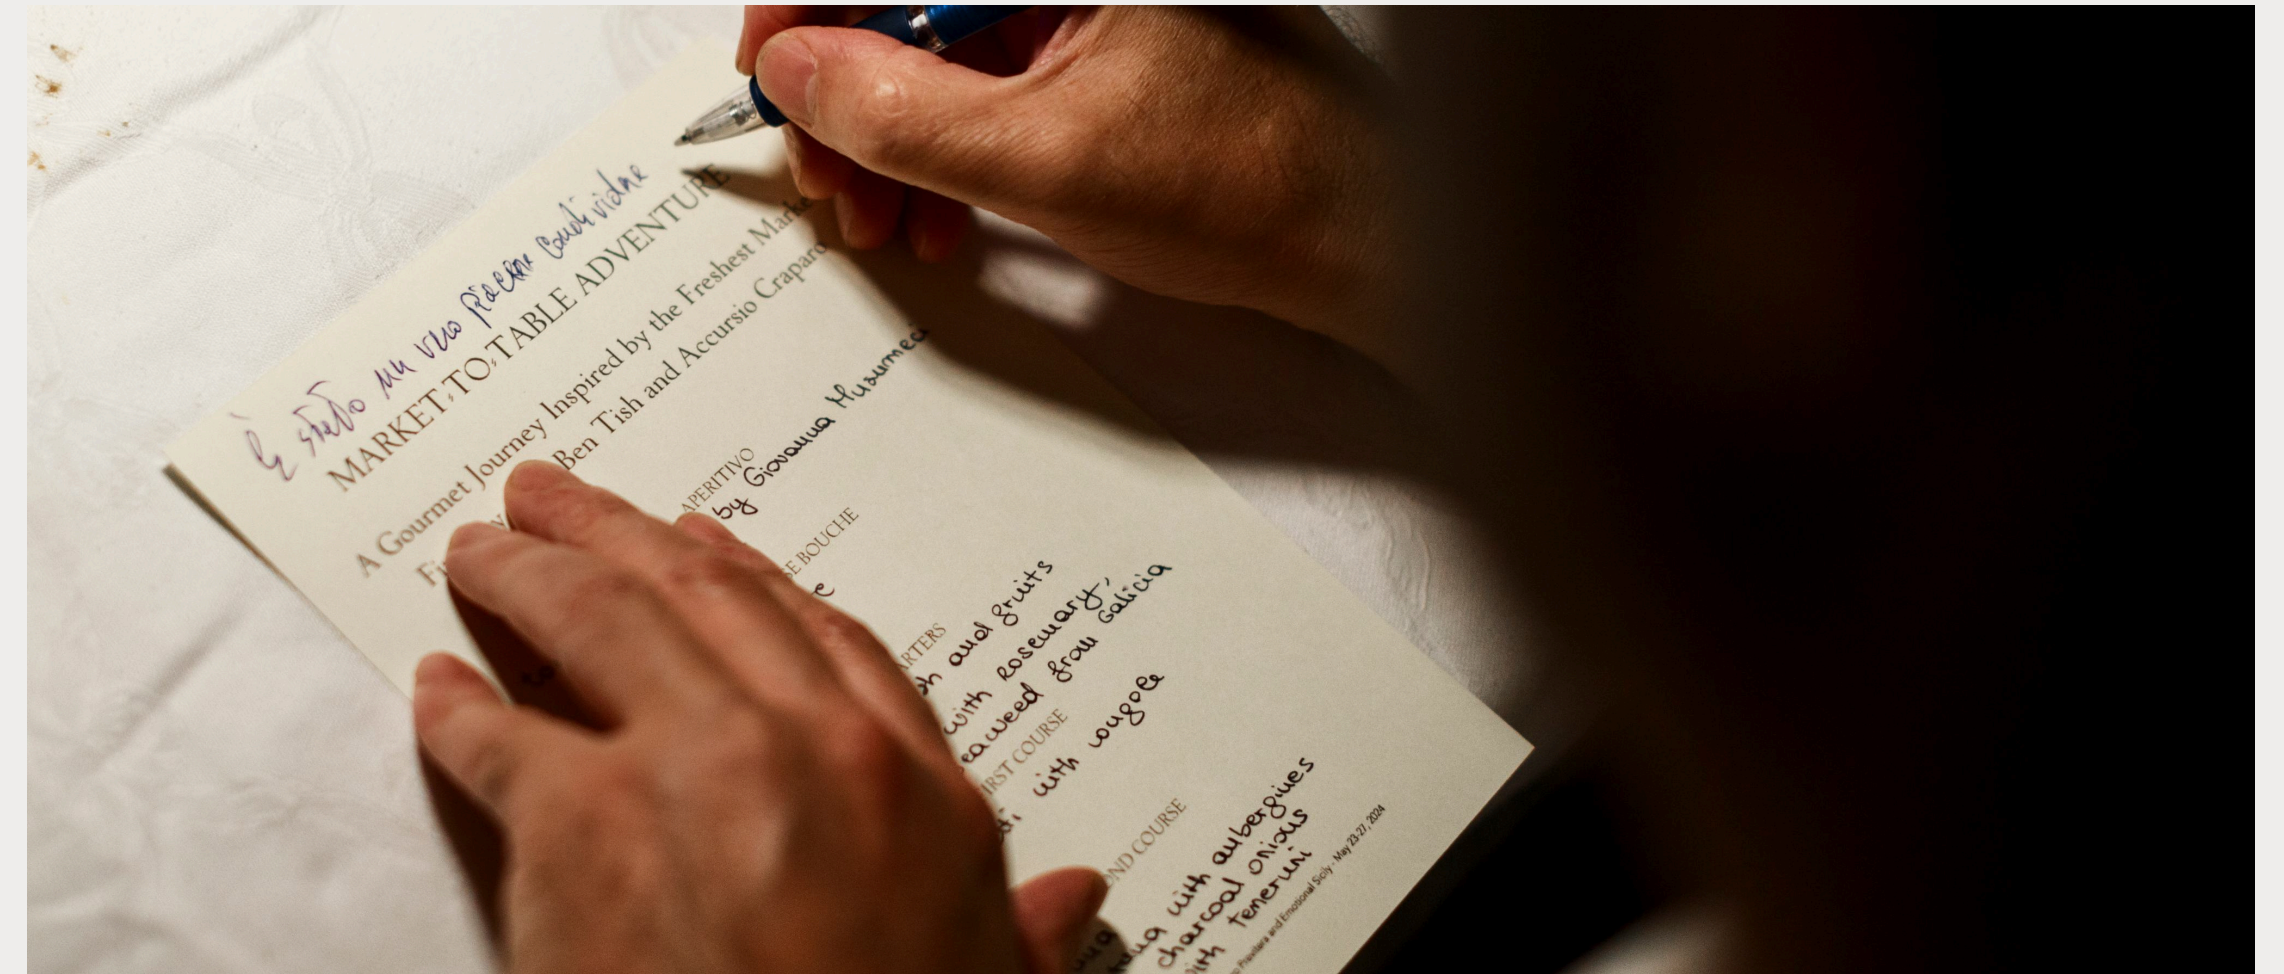 È stato un vero piacere condividere
MARKET-TO-TABLE ADVENTURE
A Gourmet Journey Inspired by the Freshest Marke
Fi
Ben Tish and Accursio Craparo
APERITIVO
by Giovanna Musumeci
SE BOUCHE
re
ARTERS
sh and fruits
with rosemary,
eaweed from Galicia
FIRST COURSE
with vongole
OND COURSE
with aubergines
charcoal onions
with tenerumi
and Emotional Sicily - May 23-27, 2024